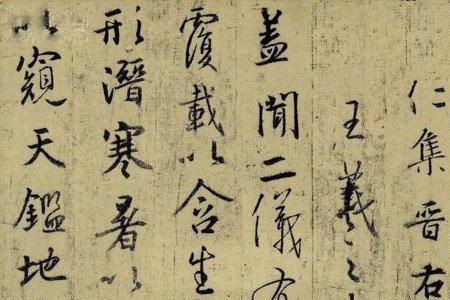 仁集晋右
王羲之
盖聞二儀有
覆載以含生
形潛寒暑以
以窺天鑑地